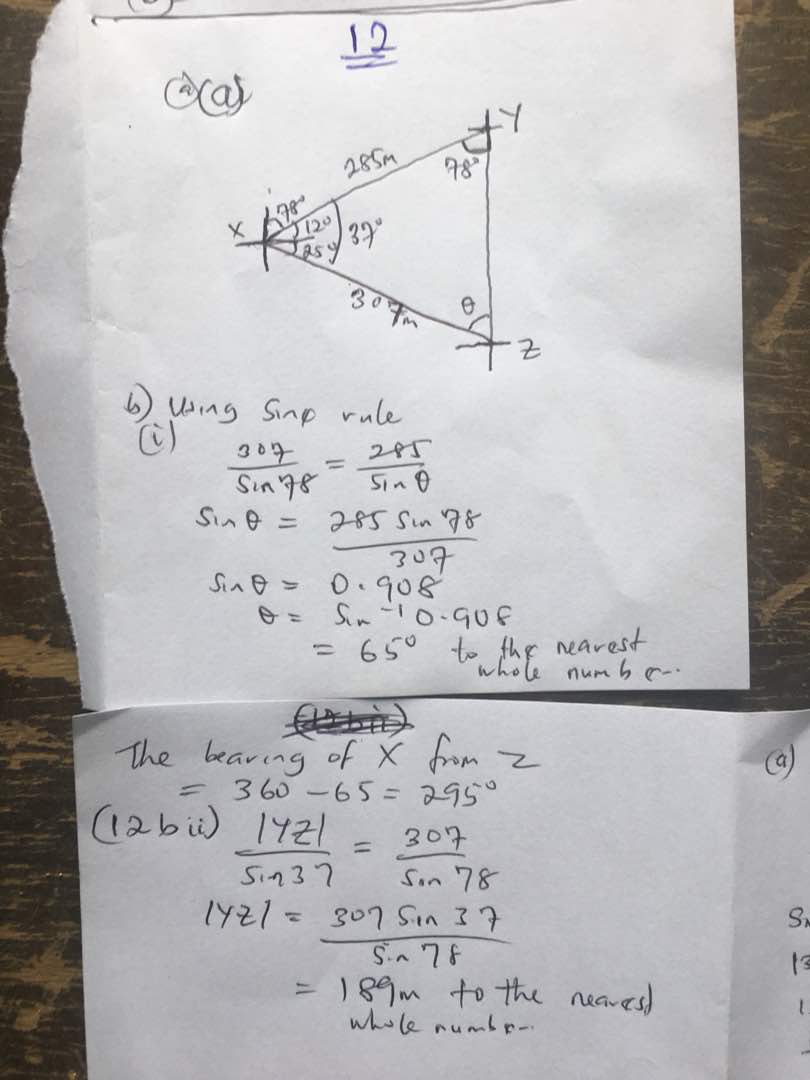 12
(a)(a)
Y
285m
78°
78°
X
12°
37°
25°
307m
θ
Z
b) Using Sine rule
(i)
307/Sin78 = 285/Sin θ
Sin θ = 285 Sin 78/307
Sin θ = 0.908
θ = Sin⁻¹ 0.908
= 65° to the nearest
whole number
The bearing of X from Z
= 360 - 65 = 295°
(a)
(12b ii) |YZ|/Sin37 = 307/Sin 78
|YZ| = 307 Sin 37/Sin 78
= 189m to the nearest
whole number
13